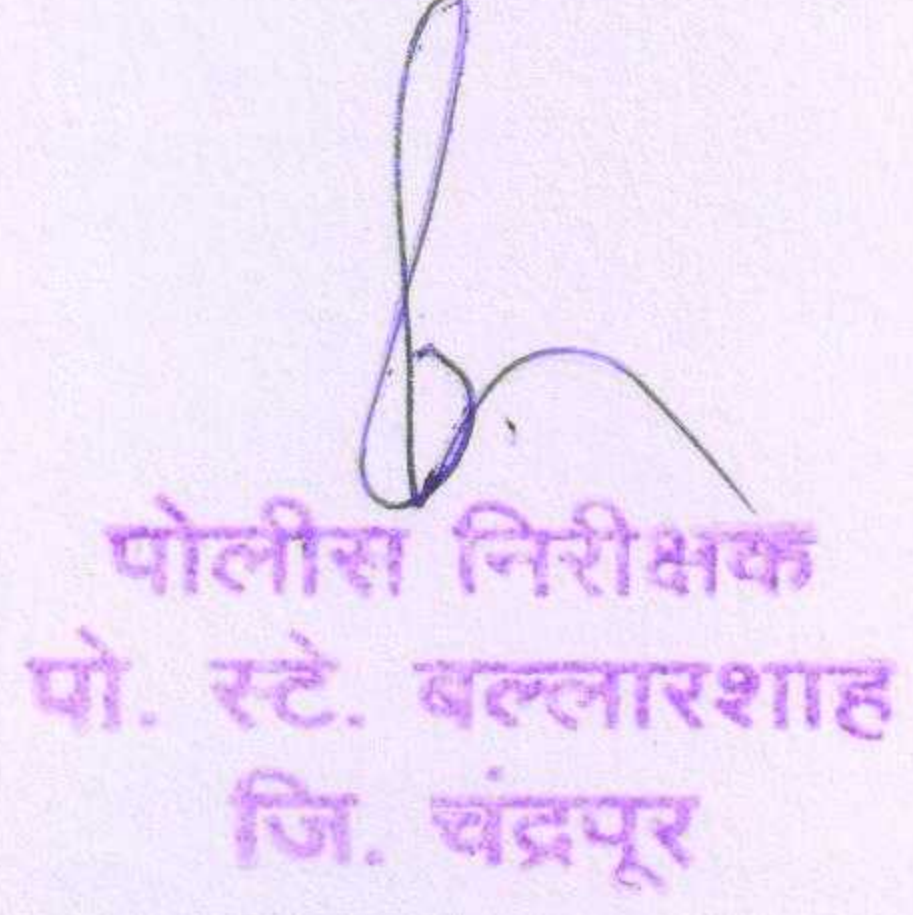 पोलीस निरीक्षक
पो. स्टे. बल्लारशाह
जि. चंद्रपूर